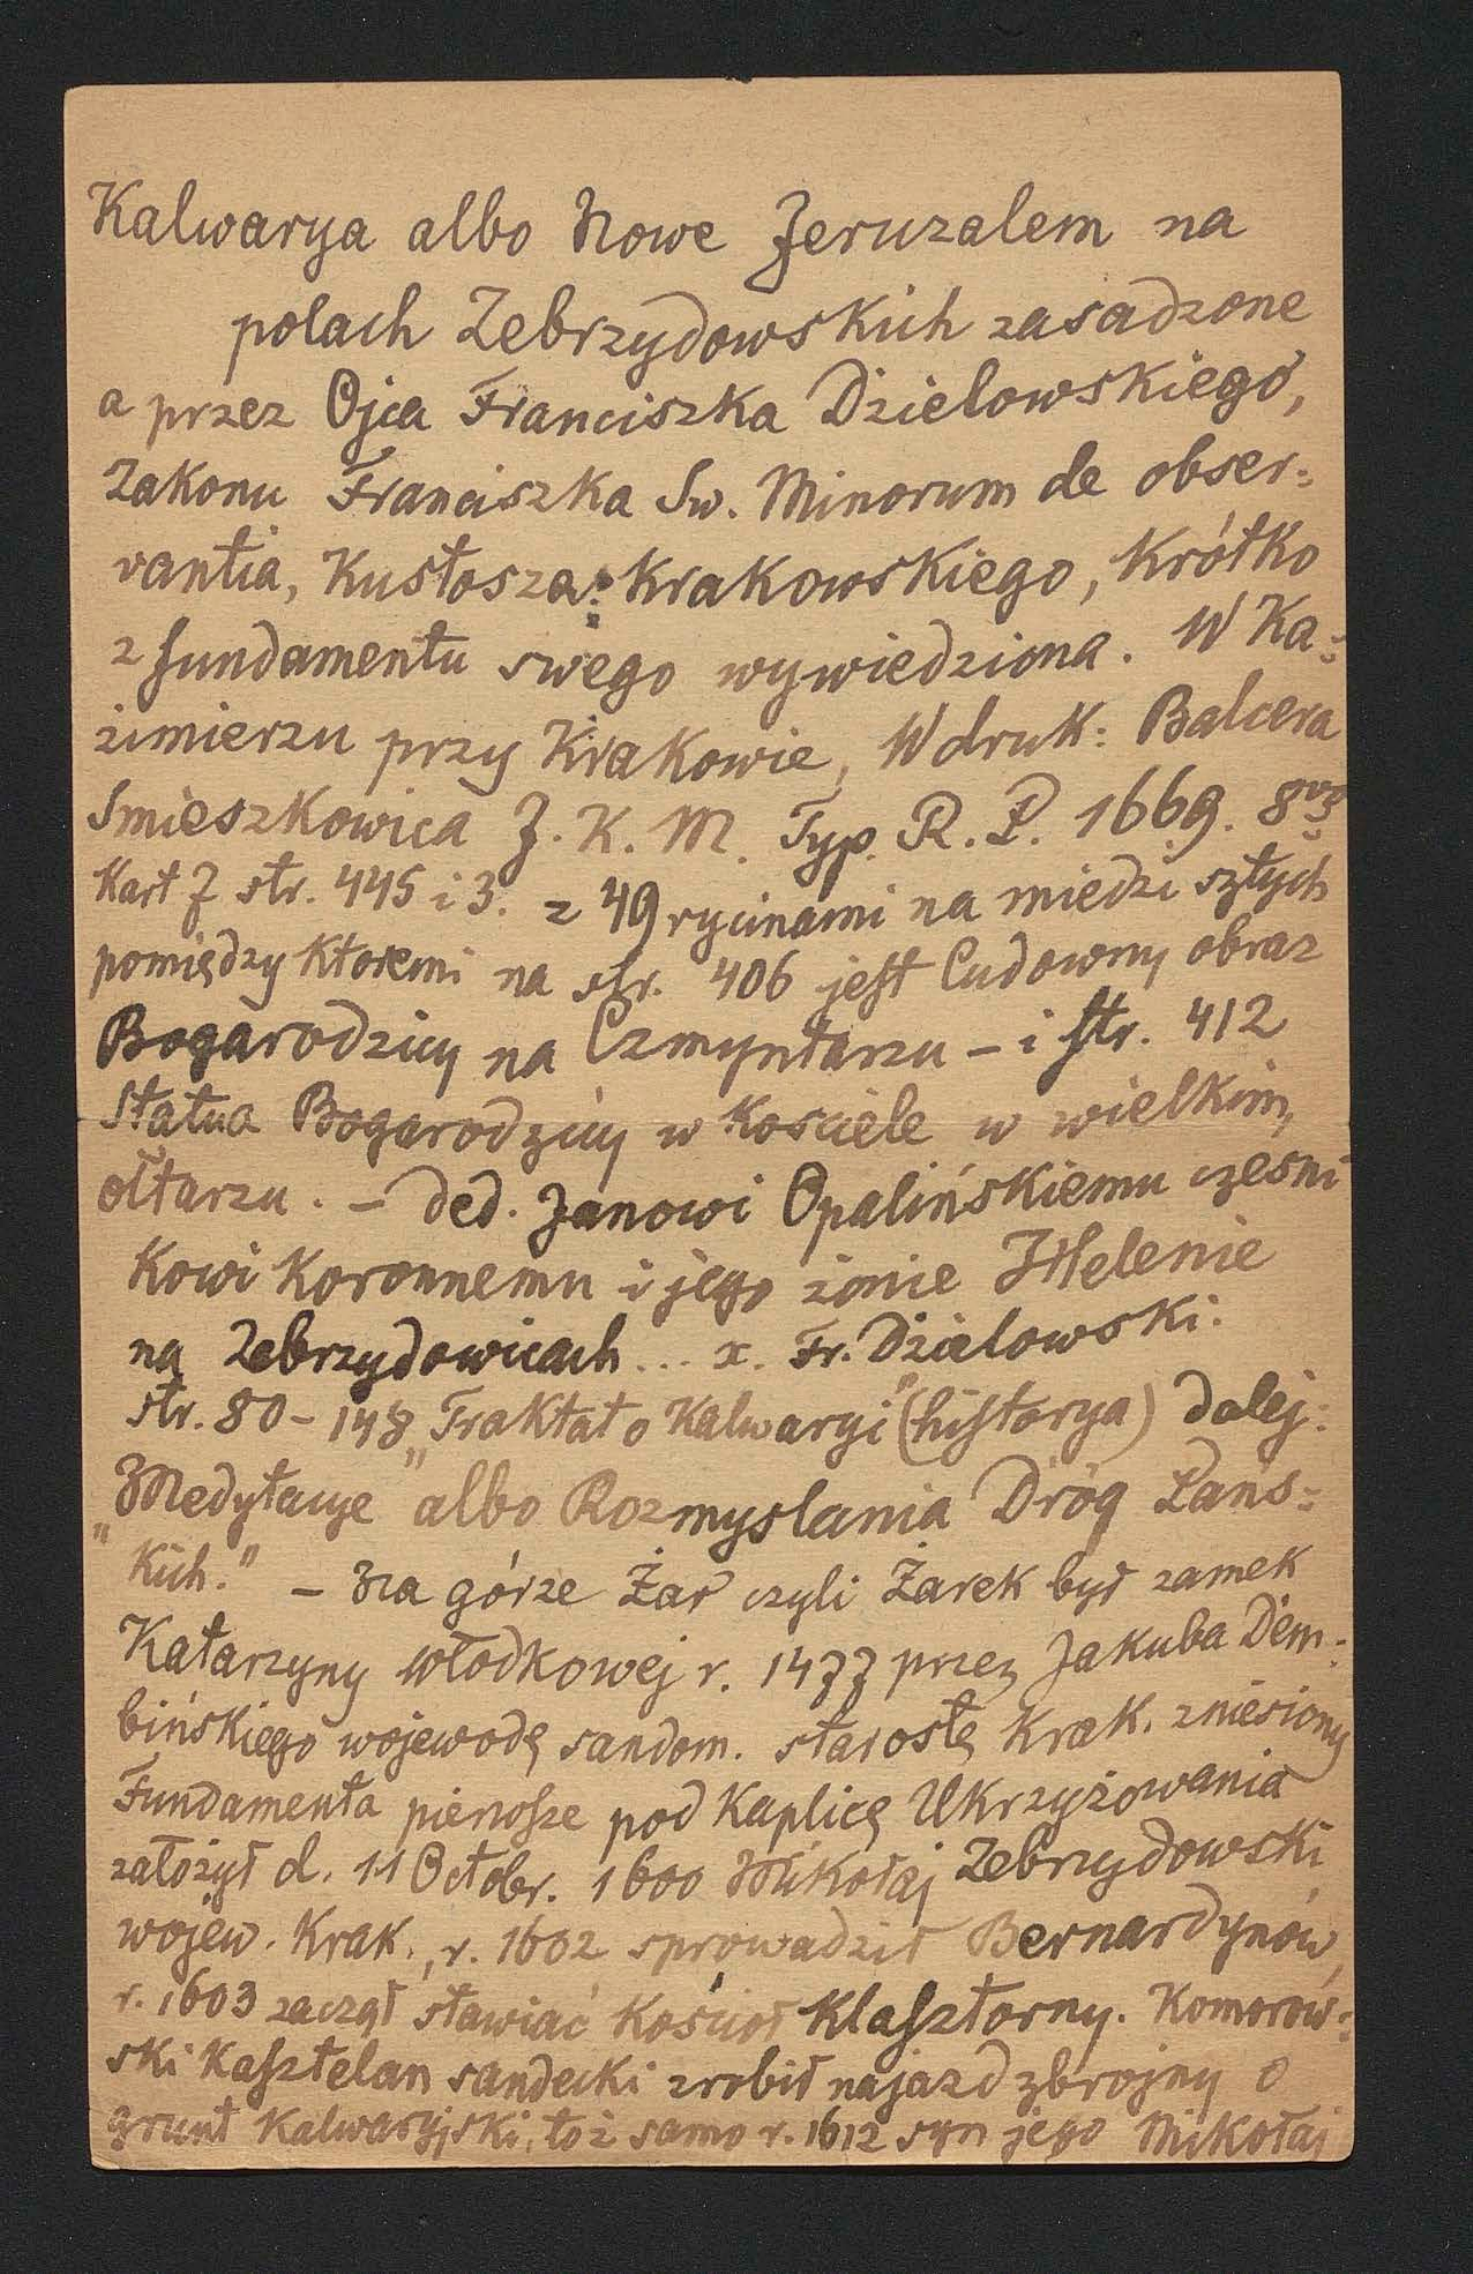 Kalwarya albo Nowe Jeruzalem na
polach Zebrzydowskich zasadzone
a przez Ojca Franciszka Dzielowskiego,
Zakonu Franciszka Sw. Minorum de obser=
vantia, Kustosza Krakowskiego, Krótko
z fundamentu swego wywiedziona. W Ka=
zimierzu przy Krakowie, W druk: Balcera
Smieszkowica J. K. M. Typ. R. P. 1669. 8vo
Kart 7 str. 445 i 3. z 49 rycinami na miedzi sztych
pomiędzy ktoremi na str. 406 jest Cudowny obraz
Bogarodzicy na Czmyntarzu – i str. 412
Statua Bogarodzicy w Kosciele w wielkim
ołtarzu. – ded. Janowi Opalińskiemu czesni
kowi Koronnemu i jego żonie Helenie
na Zebrzydowicach... x. Fr. Dzielowski.
str. 80–148 „Traktat o Kalwaryi" (historya) dalej:
„Medytacye albo Rozmyslania Dróg Pańs=
„kich." – Na górze Żar czyli Żarek był zamek
Katarzyny Włodkowej r. 1477 przez Jakuba Dem=
bińskiego wojewodę sandom. starostę Krak. zniesiony
Fundamenta pierwsze pod Kaplicę Ukrzyżowania
założył d. 11 Octobr. 1600 Mikołaj Zebrzydowski
wojew. Krak., r. 1602 sprowadził Bernardynów,
r. 1603 zaczął stawiać Kościoł Klasztorny. Komorow=
ski Kasztelan sandecki zrobił najazd zbrojny o
grunt Kalwaryjski, toż samo r. 1612 syn jego Mikołaj